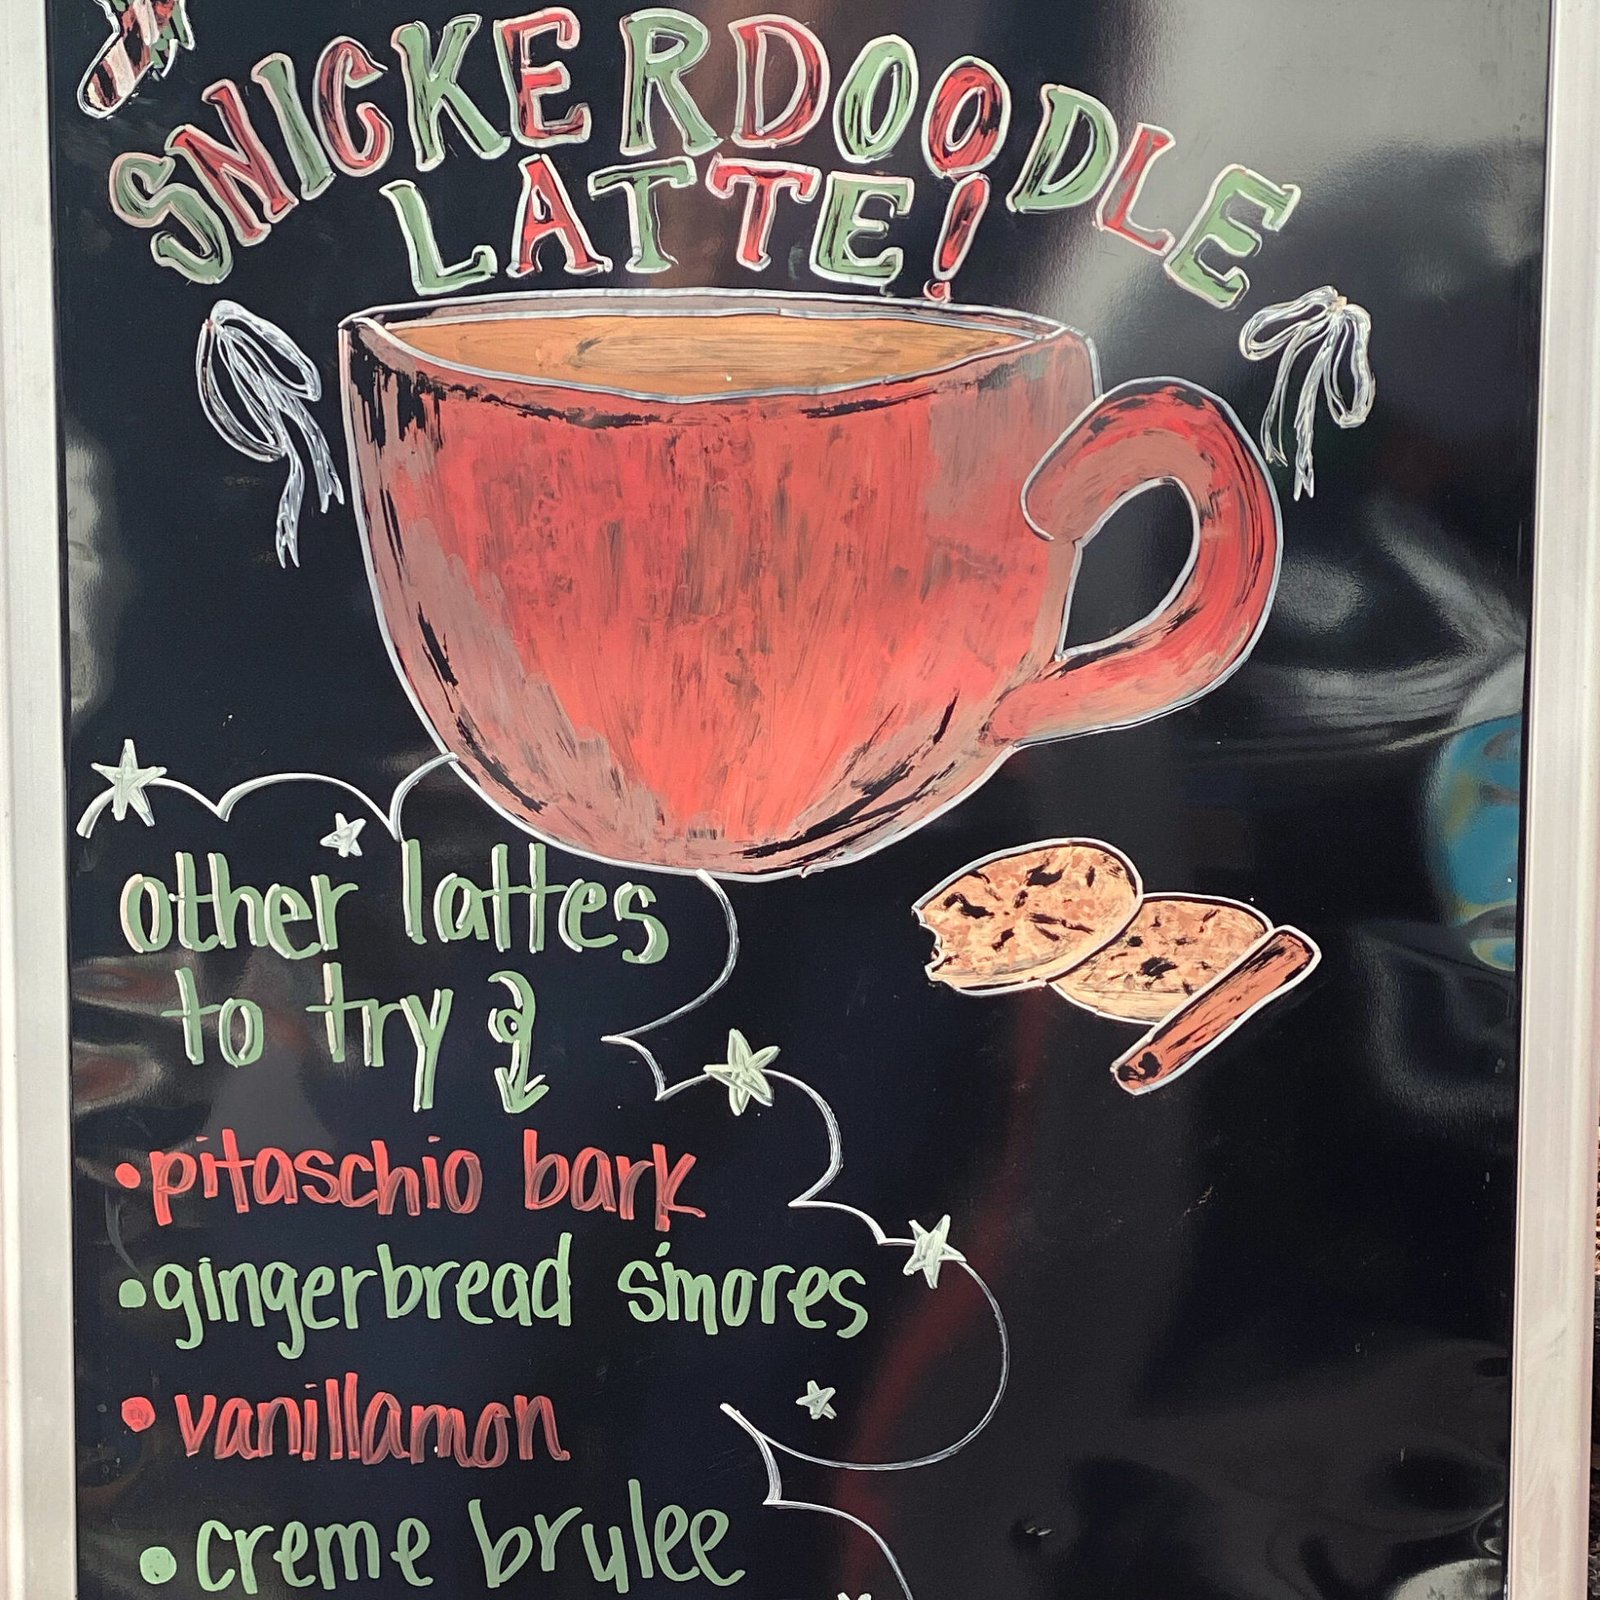 SNICKERDOODLE
LATTE!
other lattes
to try
• pitaschio bark
• gingerbread s'mores
• vanillamon
• creme brulee